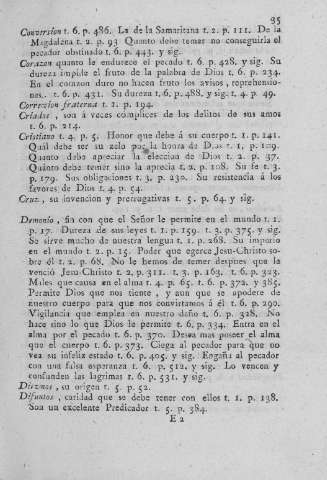 35
Conversion t. 6. p. 486. La de la Samaritana t. 2. p. 111. De la
Magdalena t. 2. p. 93. Quanto debe temer no conseguirla el
pecador obstinado t. 6. p. 443. y sig.
Corazon quanto le endurece el pecado t. 6. p. 428. y sig. Su
dureza impide el fruto de la palabra de Dios t. 6. p. 234.
En el corazon duro no hacen fruto los avisos, reprehensio-
nes. t. 6. p. 431. Su dureza t. 6. p. 488. y sig. t. 4. p. 49.
Correccion fraterna t. 1. p. 194.
Criados, son á veces complices de los delitos de sus amos
t. 6. p. 214.
Cristiano t. 4. p. 5. Honor que debe á su cuerpo t. 1. p. 141.
Quál debe ser su zelo por la honra de Dios t. 1. p. 109.
Quanto debe apreciar la eleccion de Dios t. 2. p. 37.
Quánto debe temer sino la aprecia t. 2. p. 108. Su fe t. 3.
p. 179. Sus obligaciones t. 3. p. 230. Su resistencia á los
favores de Dios t. 4. p. 54.
Cruz, su invencion y prerrogativas t. 5. p. 64. y sig.
Demonio, fin con que el Señor le permite en el mundo t. 1.
p. 17. Dureza de sus leyes t. 1. p. 159. t. 3. p. 375. y sig.
Se sirve mucho de nuestra lengua t. 1. p. 268. Su imperio
en el mundo t. 2. p. 15. Poder que egerce Jesu-Christo so-
bre él t. 2. p. 68. No le hemos de temer despues que le
venció Jesu-Christo t. 2. p. 311. t. 3. p. 163. t. 6. p. 323.
Males que causa en el alma t. 4. p. 65. t. 6. p. 372. y 385.
Permite Dios que nos tiente, y aun que se apodere de
nuestro cuerpo para que nos convirtamos á él t. 6. p. 290.
Vigilancia que emplea en nuestro daño t. 6. p. 328. No
hace sino lo que Dios le permite t. 6. p. 334. Entra en el
alma por el pecado t. 6. p. 370. Desea mas poseer el alma
que el cuerpo t. 6. p. 373. Ciega al pecador para que no
vea su infeliz estado t. 6. p. 405. y sig. Engaña al pecador
con una falsa esperanza t. 6. p. 512. y sig. Lo vencen y
confunden las lagrimas t. 6. p. 531. y sig.
Diezmos, su origen t. 5. p. 52.
Difuntos, caridad que se debe tener con ellos t. 1. p. 138.
Son un excelente Predicador t. 5. p. 384.
E 2